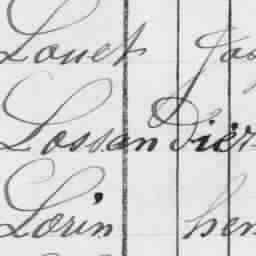 Louet Jos
Lossan Dier
Lorin hen